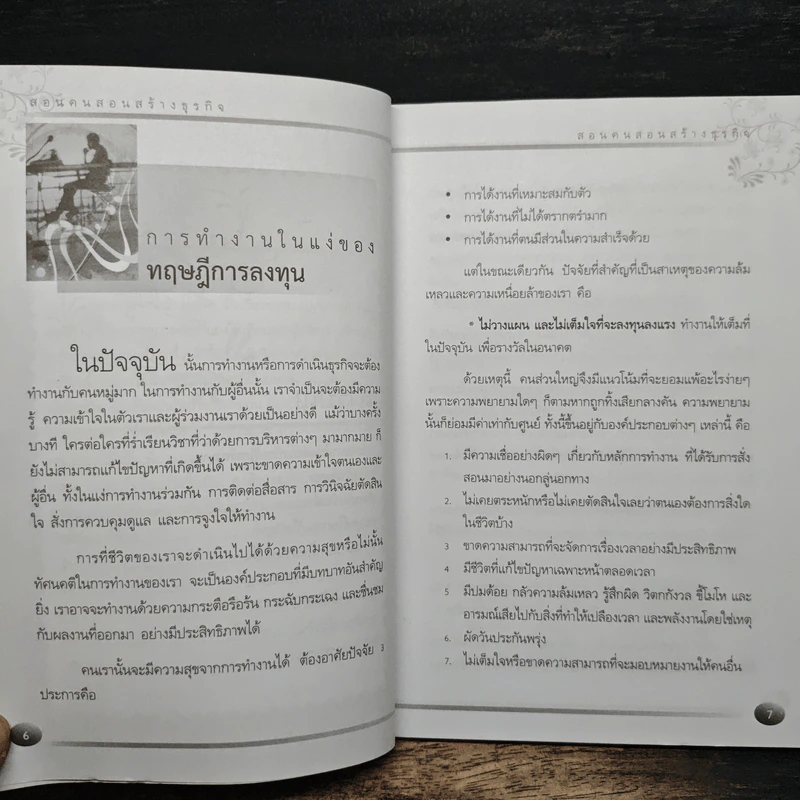 สอนคนสอนสร้างธุรกิจ
การทำงานในแง่ของ
ทฤษฎีการลงทุน
ในปัจจุบัน นั้นการทำงานหรือการดำเนินธุรกิจจะต้อง
ทำงานกับคนหมู่มาก ในการทำงานกับผู้อื่นนั้น เราจำเป็นจะต้องมีความ
รู้ ความเข้าใจในตัวเราและผู้ร่วมงานเราด้วยเป็นอย่างดี แม้ว่าบางครั้ง
บางที ใครต่อใครที่ร่ำเรียนวิชาที่ว่าด้วยการบริหารต่างๆ มามากมาย ก็
ยังไม่สามารถแก้ไขปัญหาที่เกิดขึ้นได้ เพราะขาดความเข้าใจตนเองและ
ผู้อื่น ทั้งในแง่การทำงานร่วมกัน การติดต่อสื่อสาร การวินิจฉัยตัดสิน
ใจ สั่งการควบคุมดูแล และการจูงใจให้ทำงาน
การที่ชีวิตของเราจะดำเนินไปได้ด้วยความสุขหรือไม่นั้น
ทัศนคติในการทำงานของเรา จะเป็นองค์ประกอบที่มีบทบาทอันสำคัญ
ยิ่ง เราอาจจะทำงานด้วยความกระตือรือร้น กระฉับกระเฉง และชื่นชม
กับผลงานที่ออกมา อย่างมีประสิทธิภาพได้
คนเรานั้นจะมีความสุขจากการทำงานได้ ต้องอาศัยปัจจัย 3
ประการคือ
6
สอนคนสอนสร้างธุรกิจ
• การได้งานที่เหมาะสมกับตัว
• การได้งานที่ไม่ได้ตรากตรำมาก
• การได้งานที่ตนมีส่วนในความสำเร็จด้วย
แต่ในขณะเดียวกัน ปัจจัยที่สำคัญที่เป็นสาเหตุของความล้ม
เหลวและความเหนื่อยล้าของเรา คือ
* ไม่วางแผน และไม่เต็มใจที่จะลงทุนลงแรง ทำงานให้เต็มที่
ในปัจจุบัน เพื่อรางวัลในอนาคต
ด้วยเหตุนี้ คนส่วนใหญ่จึงมีแนวโน้มที่จะยอมแพ้อะไรง่ายๆ
เพราะความพยายามใดๆ ก็ตามหากถูกทิ้งเสียกลางคัน ความพยายาม
นั้นก็ย่อมมีค่าเท่ากับศูนย์ ทั้งนี้ขึ้นอยู่กับองค์ประกอบต่างๆ เหล่านี้ คือ
1. มีความเชื่ออย่างผิดๆ เกี่ยวกับหลักการทำงาน ที่ได้รับการสั่ง
สอนมาอย่างนอกลู่นอกทาง
2. ไม่เคยตระหนักหรือไม่เคยตัดสินใจเลยว่าตนเองต้องการสิ่งใด
ในชีวิตบ้าง
3 ขาดความสามารถที่จะจัดการเรื่องเวลาอย่างมีประสิทธิภาพ
4 มีชีวิตที่แก้ไขปัญหาเฉพาะหน้าตลอดเวลา
5 มีปมด้อย กลัวความล้มเหลว รู้สึกผิด วิตกกังวล ขี้โมโห และ
อารมณ์เสียไปกับสิ่งที่ทำให้เปลืองเวลา และพลังงานโดยใช่เหตุ
6. ผัดวันประกันพรุ่ง
7. ไม่เต็มใจหรือขาดความสามารถที่จะมอบหมายงานให้คนอื่น
7